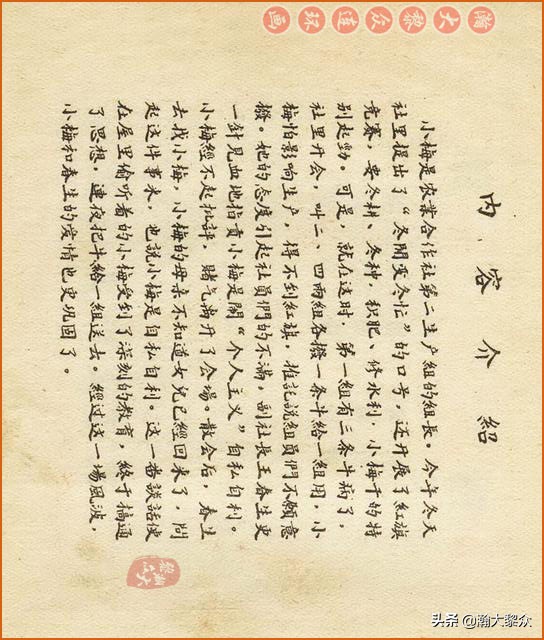 瀚大黎众连环画
内容介紹
小梅是农業合作社第二生产組的組長。今年冬天
社里提出了“冬閒变冬忙”的口号，还开展了紅旗
竞賽，要冬耕、冬种、积肥、修水利，小梅干的特
别起勁。可是，就在这时，第一組有三条牛病了，
社里开会，叫二、四两組各撥一条牛給一組用，小
梅怕影响生产，得不到紅旗，推託說組員們不願意
撥。她的态度引起社員們的不滿，副社長王春生更
一針見血地指責小梅是鬧“个人主义”自私自利。
小梅經不起批評，賭气离开了会場。散会后，春生
去找小梅，小梅的母亲不知道女兒已經回来了，問
起这件事来，也說小梅是自私自利。这一番談話使
在屋里偷听着的小梅受到了深刻的教育，終于搞通
了思想，連夜把牛給一組送去。經过这一場風波，
小梅和春生的爱情也更巩固了。
瀚大黎众
头条 @瀚大黎众